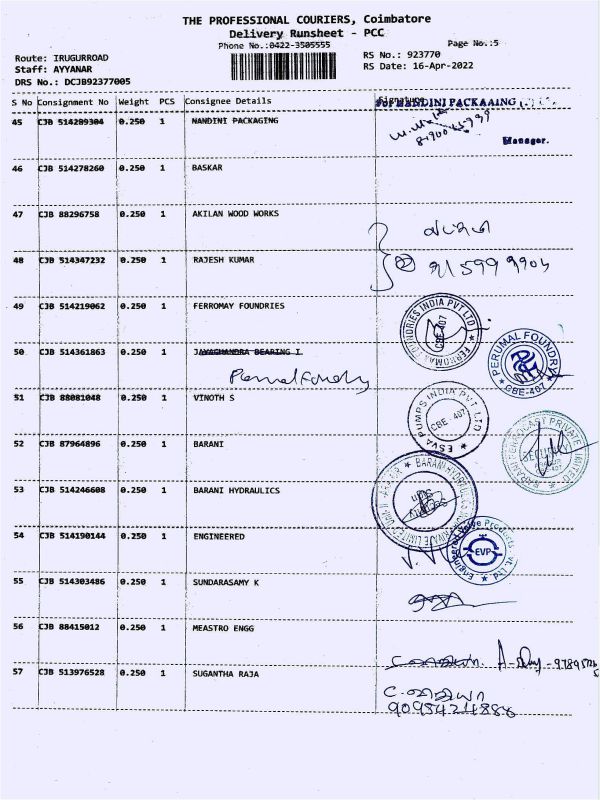 THE PROFESSIONAL COURIERS, Coimbatore
Delivery Runsheet - PCC
Phone No.:0422-3505555
Page No.:5
Route: IRUGURROAD
RS No.: 923770
Staff: AYYANAR
RS Date: 16-Apr-2022
DRS No.: DCJB92377005
S No Consignment No Weight PCS Consignee Details Signature
For NANDINI PACKAAING
45 CJB 514289304 0.250 1 NANDINI PACKAGING
Manager.
46 CJB 514278260 0.250 1 BASKAR
47 CJB 88296758 0.250 1 AKILAN WOOD WORKS
48 CJB 514347232 0.250 1 RAJESH KUMAR
49 CJB 514219062 0.250 1 FERROMAY FOUNDRIES
FOUNDRIES INDIA PVT LTD
CBE-407
50 CJB 514361863 0.250 1 JAYACHANDRA BEARING I
PERUMAL FOUNDRY
CBE-407
51 CJB 88081048 0.250 1 VINOTH S
ESVA PUMPS INDIA PVT LTD
CBE - 407
52 CJB 87964896 0.250 1 BARANI
BARANI FERROCAST PRIVATE LIMITED
53 CJB 514246608 0.250 1 BARANI HYDRAULICS
BARANI HYDRAULICS
54 CJB 514190144 0.250 1 ENGINEERED
Engineered Valve Products
EVP
55 CJB 514303486 0.250 1 SUNDARASAMY K
56 CJB 88415012 0.250 1 MEASTRO ENGG
57 CJB 513976528 0.250 1 SUGANTHA RAJA